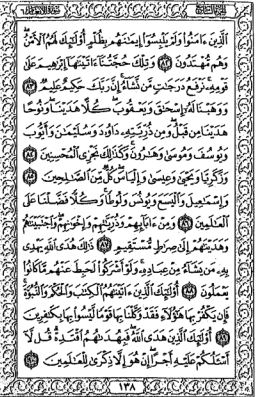 الجزء السابع
سورة الأنعام
الَّذِينَ ءَامَنُوا۟ وَلَمْ يَلْبِسُوٓا۟ إِيمَٰنَهُم بِظُلْمٍ أُو۟لَٰٓئِكَ لَهُمُ ٱلْأَمْنُ
وَهُم مُّهْتَدُونَ ٨٢ وَتِلْكَ حُجَّتُنَآ ءَاتَيْنَٰهَآ إِبْرَٰهِيمَ عَلَىٰ
قَوْمِهِۦ نَرْفَعُ دَرَجَٰتٍ مَّن نَّشَآءُ إِنَّ رَبَّكَ حَكِيمٌ عَلِيمٌ ٨٣
وَوَهَبْنَا لَهُۥٓ إِسْحَٰقَ وَيَعْقُوبَ كُلًّا هَدَيْنَا وَنُوحًا
هَدَيْنَا مِن قَبْلُ وَمِن ذُرِّيَّتِهِۦ دَاوُۥدَ وَسُلَيْمَٰنَ وَأَيُّوبَ
وَيُوسُفَ وَمُوسَىٰ وَهَٰرُونَ وَكَذَٰلِكَ نَجْزِى ٱلْمُحْسِنِينَ ٨٤
وَزَكَرِيَّا وَيَحْيَىٰ وَعِيسَىٰ وَإِلْيَاسَ كُلٌّ مِّنَ ٱلصَّٰلِحِينَ ٨٥
وَإِسْمَٰعِيلَ وَٱلْيَسَعَ وَيُونُسَ وَلُوطًا وَكُلًّا فَضَّلْنَا عَلَى
ٱلْعَٰلَمِينَ ٨٦ وَمِنْ ءَابَآئِهِمْ وَذُرِّيَّٰتِهِمْ وَإِخْوَٰنِهِمْ وَٱجْتَبَيْنَٰهُمْ
وَهَدَيْنَٰهُمْ إِلَىٰ صِرَٰطٍ مُّسْتَقِيمٍ ٨٧ ذَٰلِكَ هُدَى ٱللَّهِ يَهْدِى
بِهِۦ مَن يَشَآءُ مِنْ عِبَادِهِۦ وَلَوْ أَشْرَكُوا۟ لَحَبِطَ عَنْهُم مَّا كَانُوا۟
يَعْمَلُونَ ٨٨ أُو۟لَٰٓئِكَ ٱلَّذِينَ ءَاتَيْنَٰهُمُ ٱلْكِتَٰبَ وَٱلْحُكْمَ وَٱلنُّبُوَّةَ
فَإِن يَكْفُرْ بِهَا هَٰٓؤُلَآءِ فَقَدْ وَكَّلْنَا بِهَا قَوْمًا لَّيْسُوا۟ بِهَا بِكَٰفِرِينَ
٨٩ أُو۟لَٰٓئِكَ ٱلَّذِينَ هَدَى ٱللَّهُ فَبِهُدَىٰهُمُ ٱقْتَدِهْ قُل لَّآ
أَسْـَٔلُكُمْ عَلَيْهِ أَجْرًا إِنْ هُوَ إِلَّا ذِكْرَىٰ لِلْعَٰلَمِينَ ٩٠
١٣٨